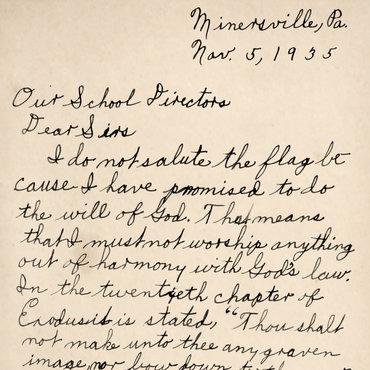 Minersville, Pa.
Nov. 5, 1935
Our School Directors
Dear Sirs
I do not salute the flag be
cause I have promised to do
the will of God. That means
that I must not worship anything
out of harmony with God's law.
In the twentieth chapter of
Exodus it is stated, "Thou shalt
not make unto thee any graven
image, nor bow down to them